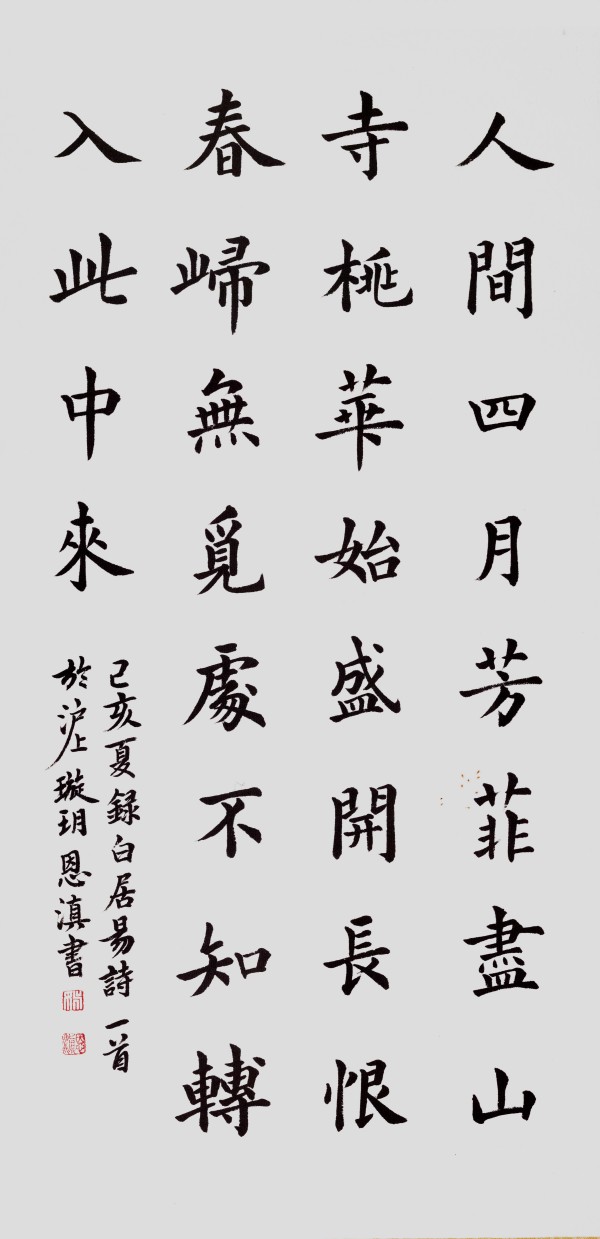 人間四月芳菲盡山
寺桃華始盛開長恨
春歸無覓處不知轉
入此中來
己亥夏録白居易詩一首
於沪上璇玥恩滇書